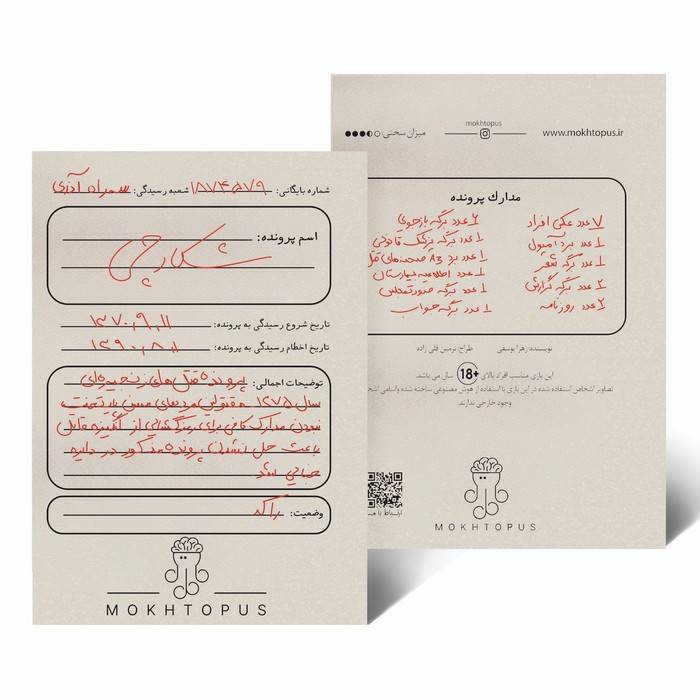 شماره بایگانی: ۱۸۷۴۵۷۹ شعبه رسیدگی: سهراه آذری
اسم پرونده:
شکارچی
تاریخ شروع رسیدگی به پرونده: ۱۳۷۰,۹,۱۱
تاریخ اخطام رسیدگی به پرونده: ۱۳۹۰,۸,۱۱
توضیحات اجمالی: پرونده قتل های زنجیره‌ای
سال ۱۳۷۵ مقتولین مردهای مسن پایتخت
نبودن مدارک کافی برای رمزگشایی از انگیزه قاتل
باعث حل نشدن پرونده مذکور در دایره
جنایی شد
وضعیت: راکد
MOKHTOPUS
mokhtopus
میزان سختی:
www.mokhtopus.ir
مدارک پرونده
۷ عدد عکس افراد
۱ عدد برد آمپول
۱ عدد برگه شعر
۲ عدد برگه گزارش
۲ عدد روزنامه
۶ عدد برگه بازجویی
۱ عدد برگه پزشک قانونی
۱ عدد برد A3 صحنه‌های قتل
۱ عدد اطلاعیه بیمارستان
۱ عدد برگه صورتمجلس
۱ عدد برگه جواب
نویسنده: زهرا یوسفی طراح: نرمین قلی زاده
این بازی مناسب افراد بالای 18+ سال می باشد.
تصاویر اشخاص استفاده شده در این بازی با استفاده از هوش مصنوعی ساخته شده واسامی اشخ
وجود خارجی ندارند.
ارتباط با
MOKHTOPUS